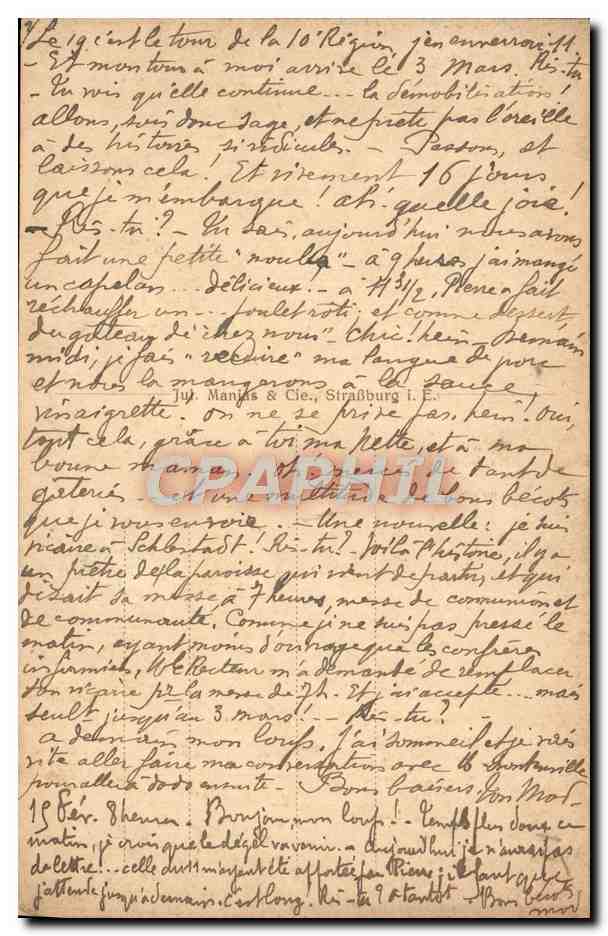 Le 19 c'est le tour de la 10e Région, j'en enverrai
- Et mon tour à moi arrive le 3 Mars. Ris-tu
- Tu vois qu'elle continue... la démobilisation!
allons, sois donc sage, et ne prete pas l'oreille
à des histoires si ridicules. - Passons, et
laissons cela! Et vivement 16 jours
que je m'embarque! ah! quelle joie!
- Ris-tu? - Tu sais, aujourd'hui nous avons
fait une petite "nouba" - à 9 heures j'ai mangé
un capelan... délicieux. - à 11 3 1/2, Pierre a fait
réchauffer un... poulet roti; et comme dessert,
du gateau de "chez nous" - Chic! hein - Demain
midi, je fais "recuire" ma langue de porc
et nous la mangerons à la sauce
Jul. Manias & Cie., Straßburg i. E.
vinaigrette. on ne se prive pas, hein! Oui,
tout cela, grâce à toi ma Pette, et à ma
bonne maman. oh! merci de tant de
CPARHIL
gateries - et une multitude de bons becots
que je vous envoie. - Une nouvelle: je suis
vicaire à Schlestadt! Ris-tu? - Voilà l'histoire, il y a
un prêtre de la paroisse qui vient de partir, et qui
disait sa messe à 7 heures, messe de communion et
de communauté. Comme je ne suis pas pressé le
matin, ayant moins d'ouvrage que les confrères
infirmiers, Mr le Recteur m'a demandé de remplacer
son vicaire pr la messe de 7h. Et j'ai accepté... mais
seult jusqu'au 3 mars! - Ris-tu?
a demain mon loup. J'ai sommeil et je vais
vite aller faire ma conversation avec
pour aller à dodo ensuite - Bons baisers Ton Mod-
15 Fév. 8 heures. Bonjour, mon loup! - Temps plus doux ce
matin, je crois que le dégel va venir. - aujourd'hui je n'aurai pas
de lettre... celle du 11 m'ayant été apportée par Pierre, il faut que
j'attende jusqu'à demain. c'est long. Ris-tu? a tantot - Bons becots
Mod